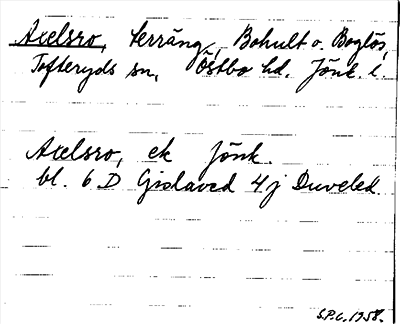 Axelsro, terräng, Bohult o. Boglös,
Tofteryds sn, Östbo hd. Jönk. l.
Axelsro, ek Jönk.
bl. 6 D Gislaved 4j Duveled.
S.P.C. 1958.